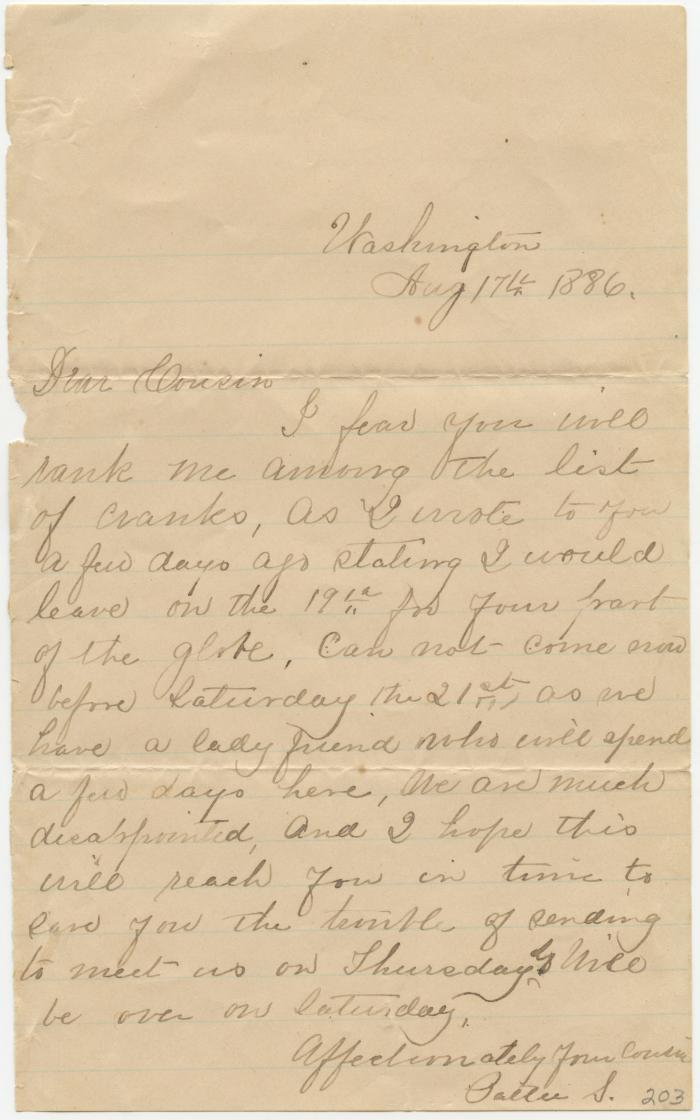 Washington
Aug 17th 1886.
Dear Cousin
I fear you will
rank me among the list
of cranks, As I wrote to you
a few days ago stating I would
leave on the 19th for your part
of the globe, Can not come now
before Saturday the 21st, as we
have a lady friend who will spend
a few days here, We are much
disappointed, And I hope this
will reach you in time to
save you the trouble of sending
to meet us on Thursday Will
be over on Saturday,
Affectionately Your Cousin
S. 203